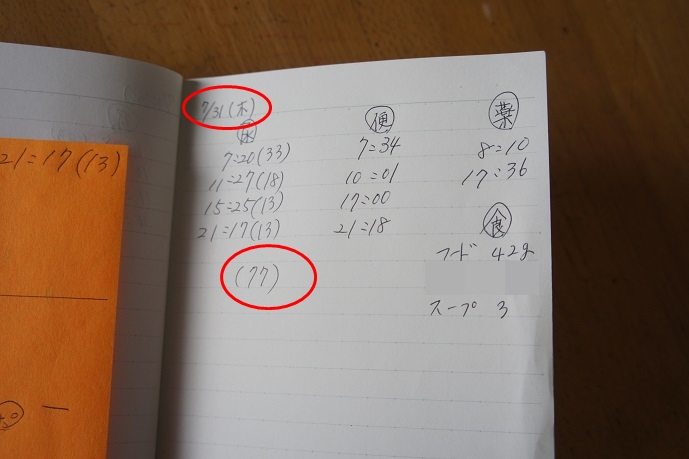 21:17(13)
7/31(木)
尿
7:20(33)
11:27(18)
15:25(13)
21:17(13)
(77)
便
7:34
10:01
17:00
21:18
薬
8:10
17:36
食
フード 42g
スープ 3